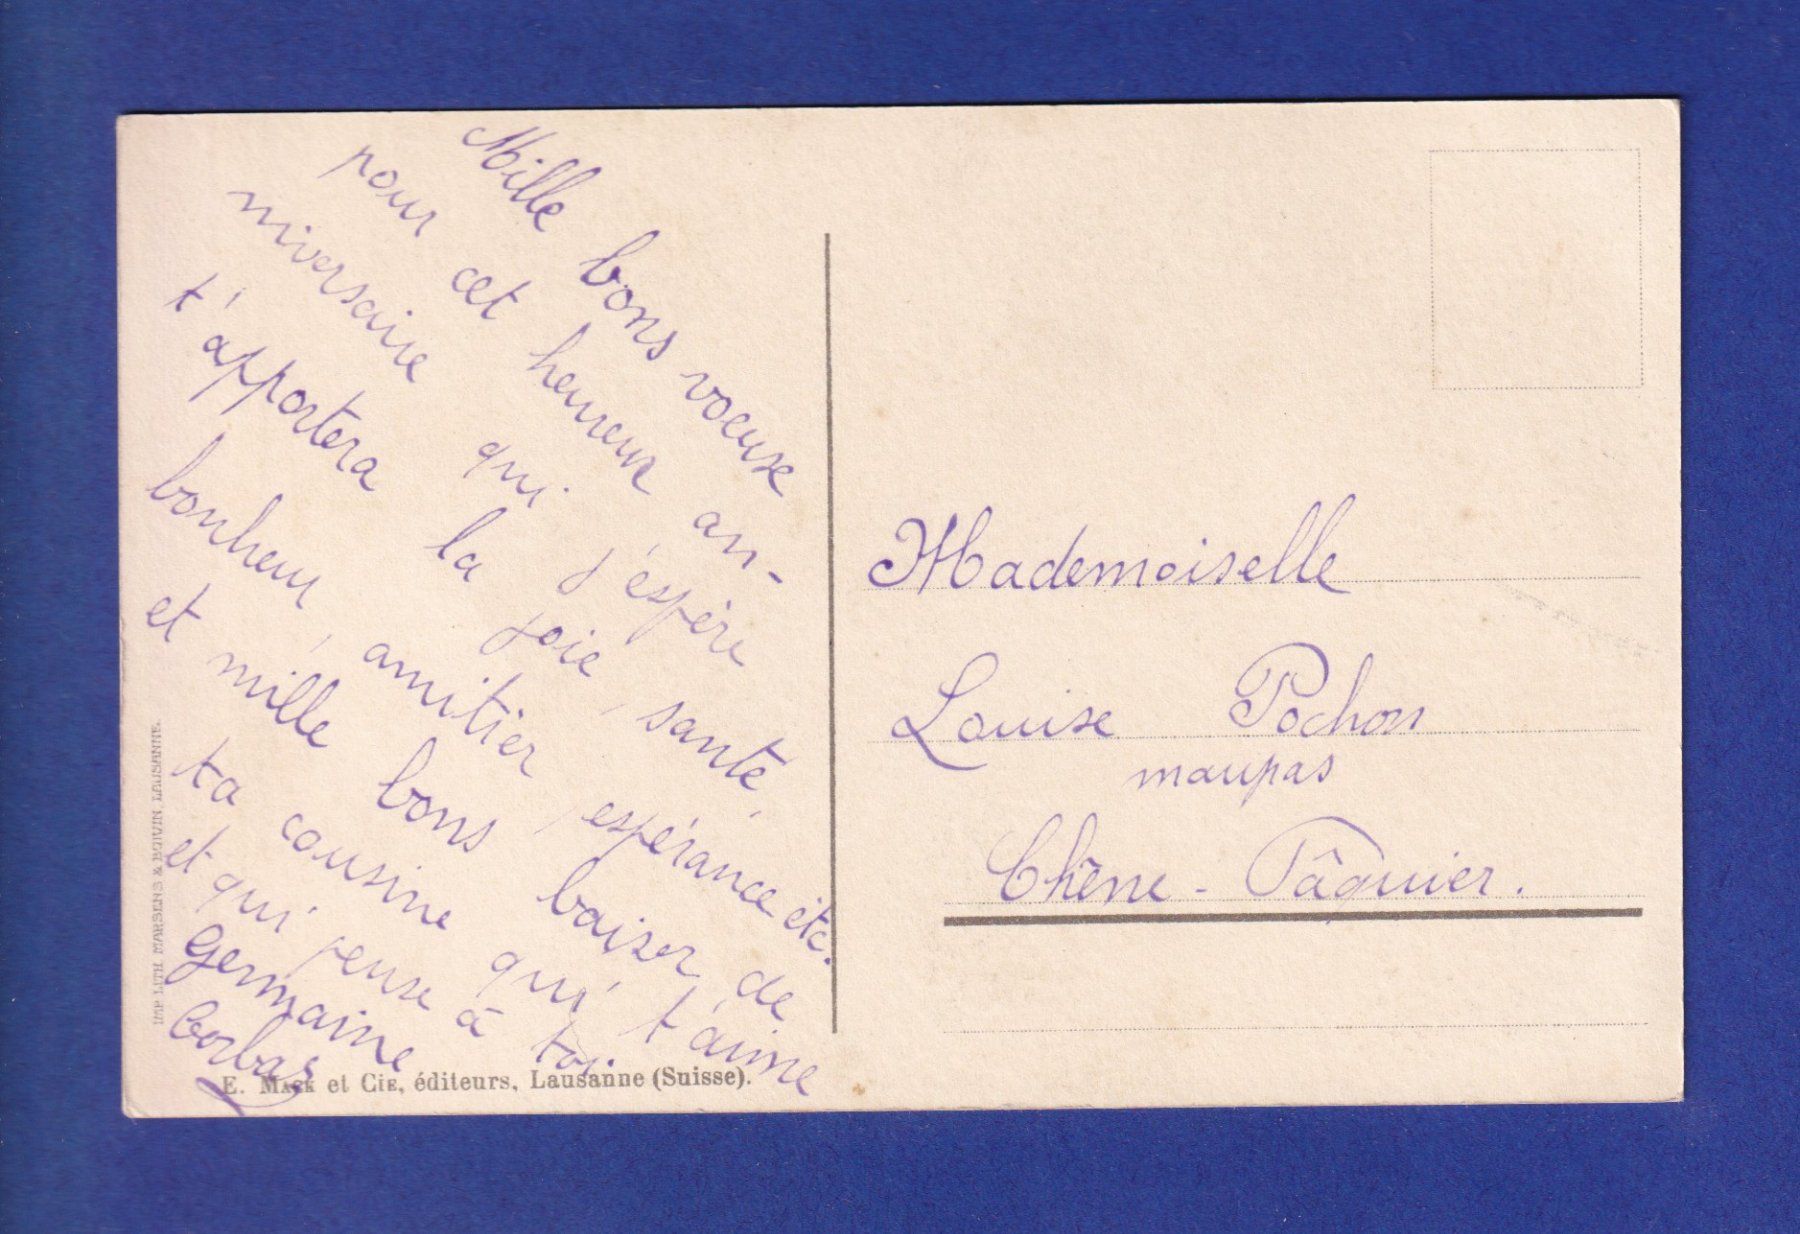 Mille bons voeuxe
pour cet heureux an-
niversaire qui j'espère
t'apportera la joie, santé,
bonheur, amitièr, espérance etc.
et mille bons baiser de
ta cousine qui t'aime
et qui pense à toi.
Germaine
Corbaz
Mademoiselle
Louise Pochon
maupas
Chêne-Pâquier.
IMP. LITH. MARSENS & BOVIN LAUSANNE.
E. MACK et CIE, éditeurs, Lausanne (Suisse).